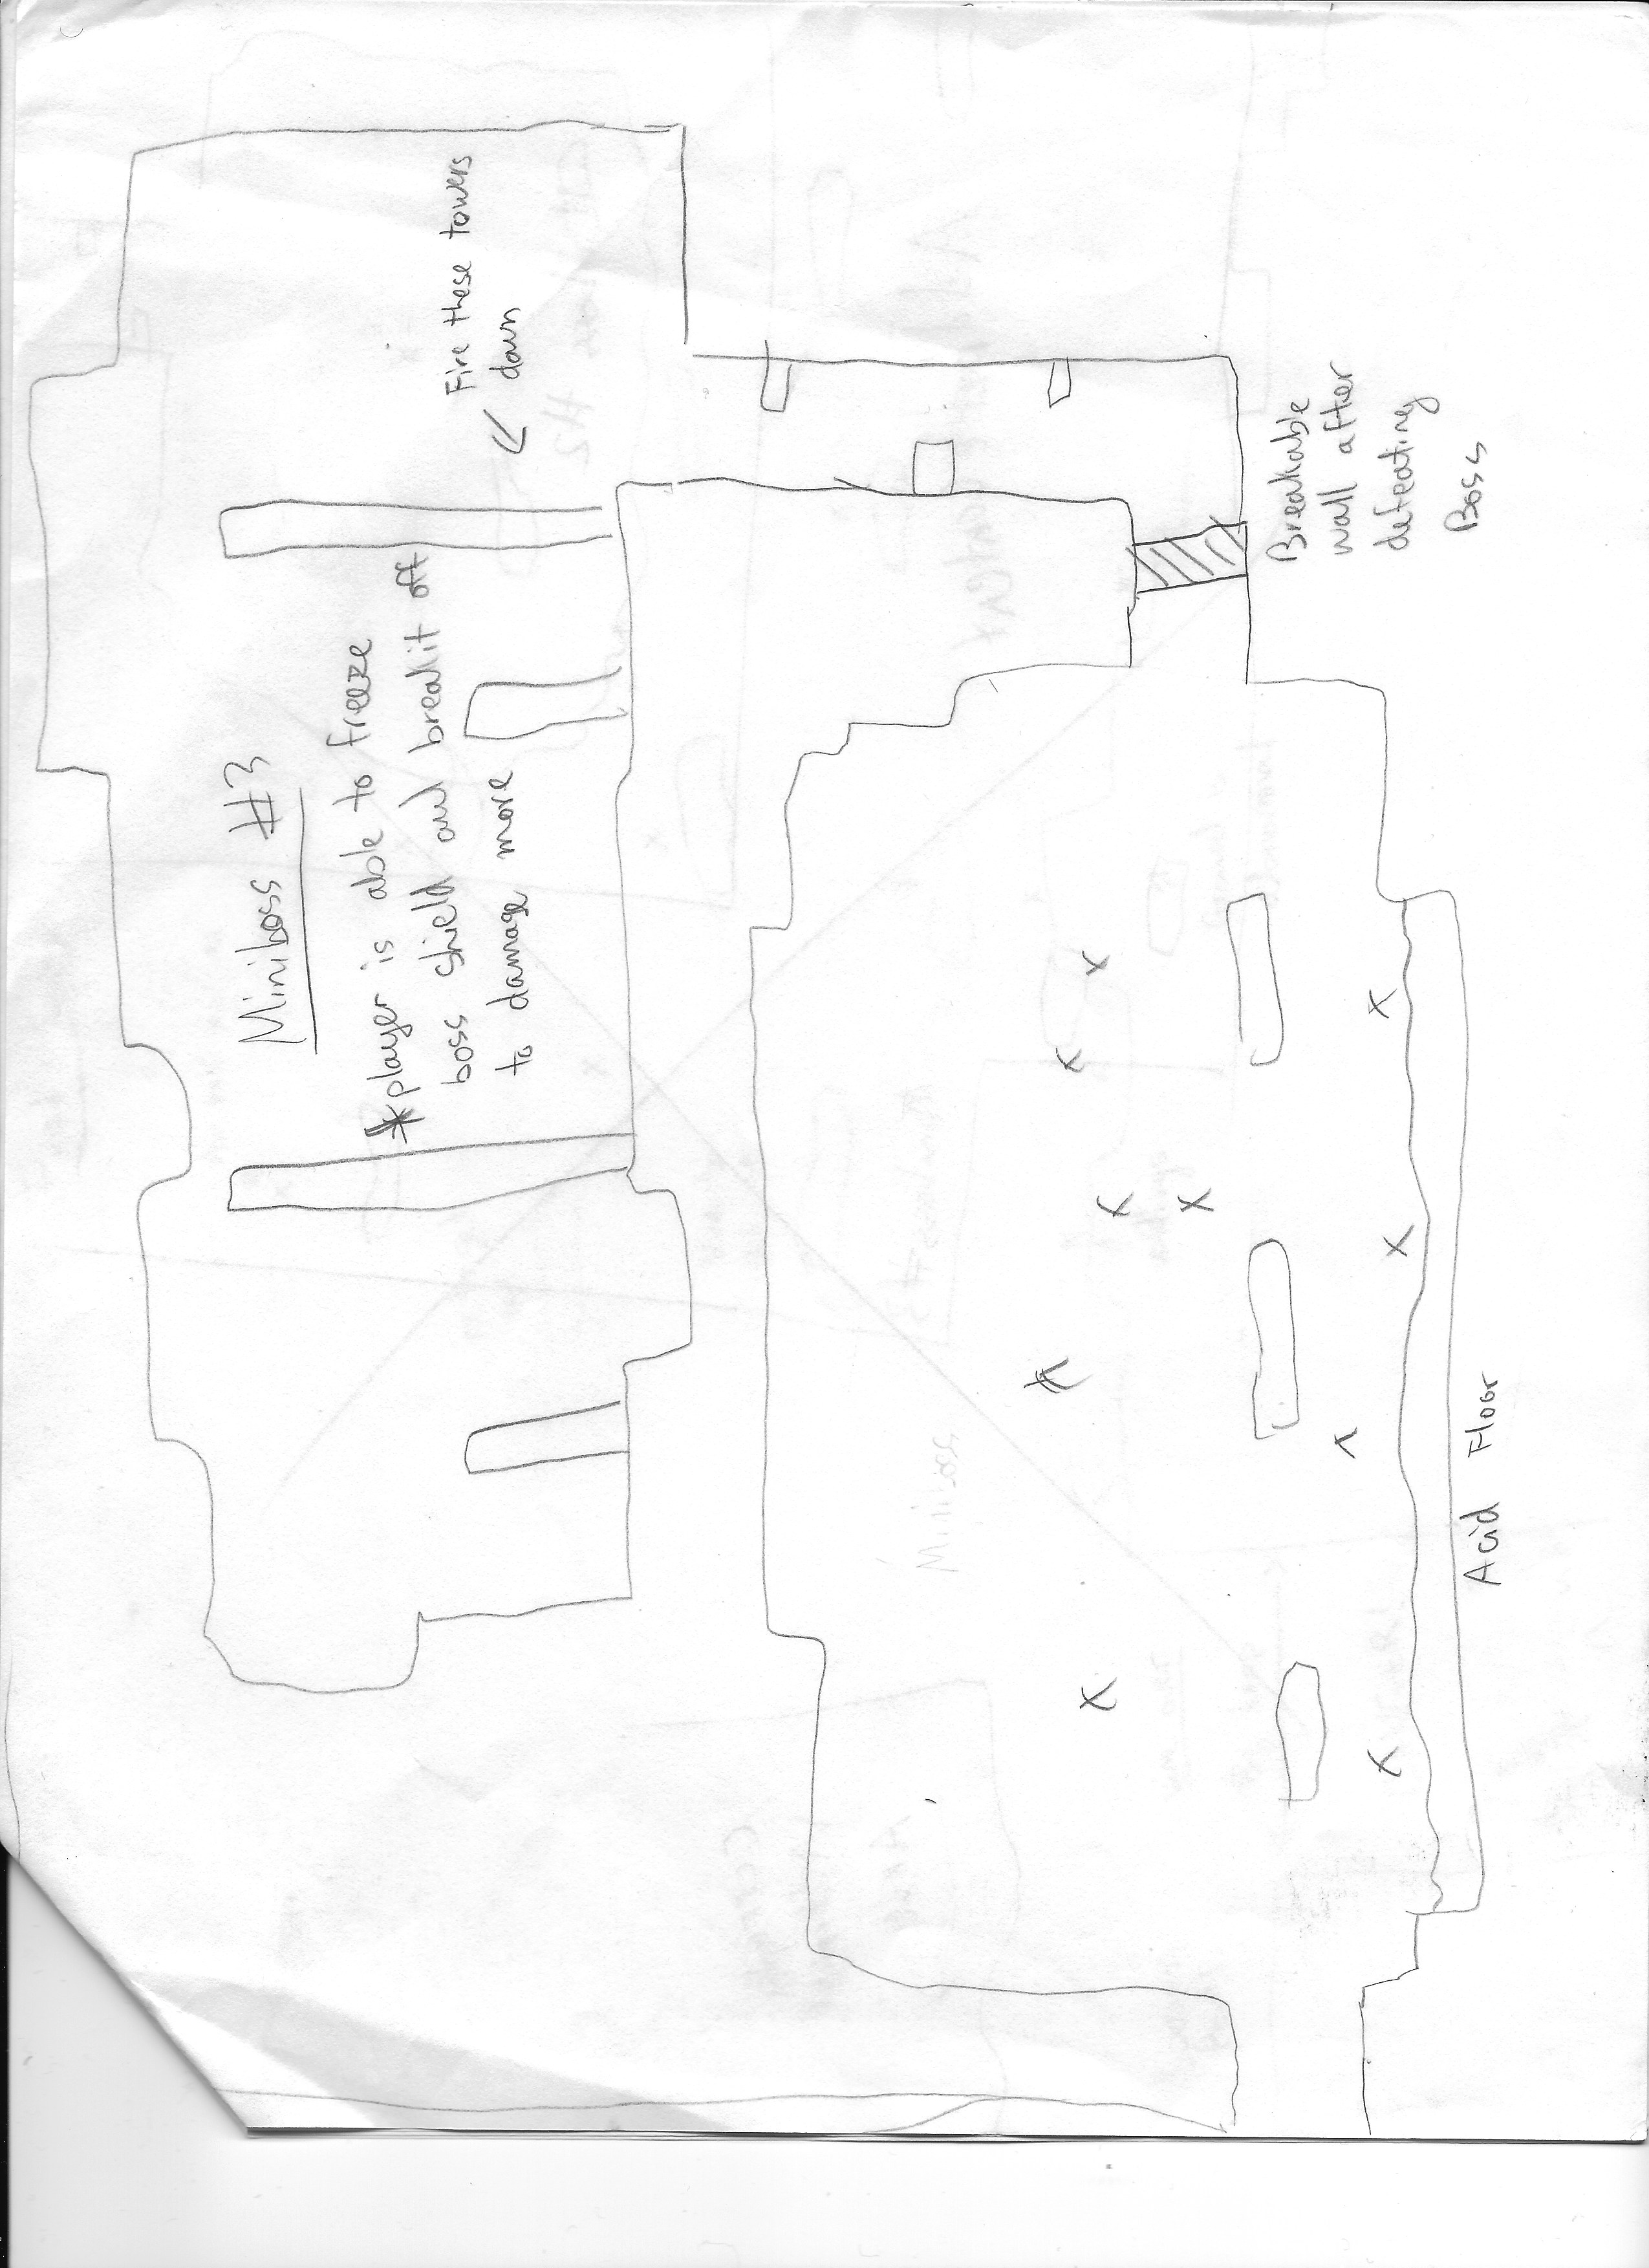 Miniboss #3
*player is able to freeze
boss shield and break it off
to damage more
Fire these towers
down
Breakable
wall after
defeating
Boss
Acid Floor